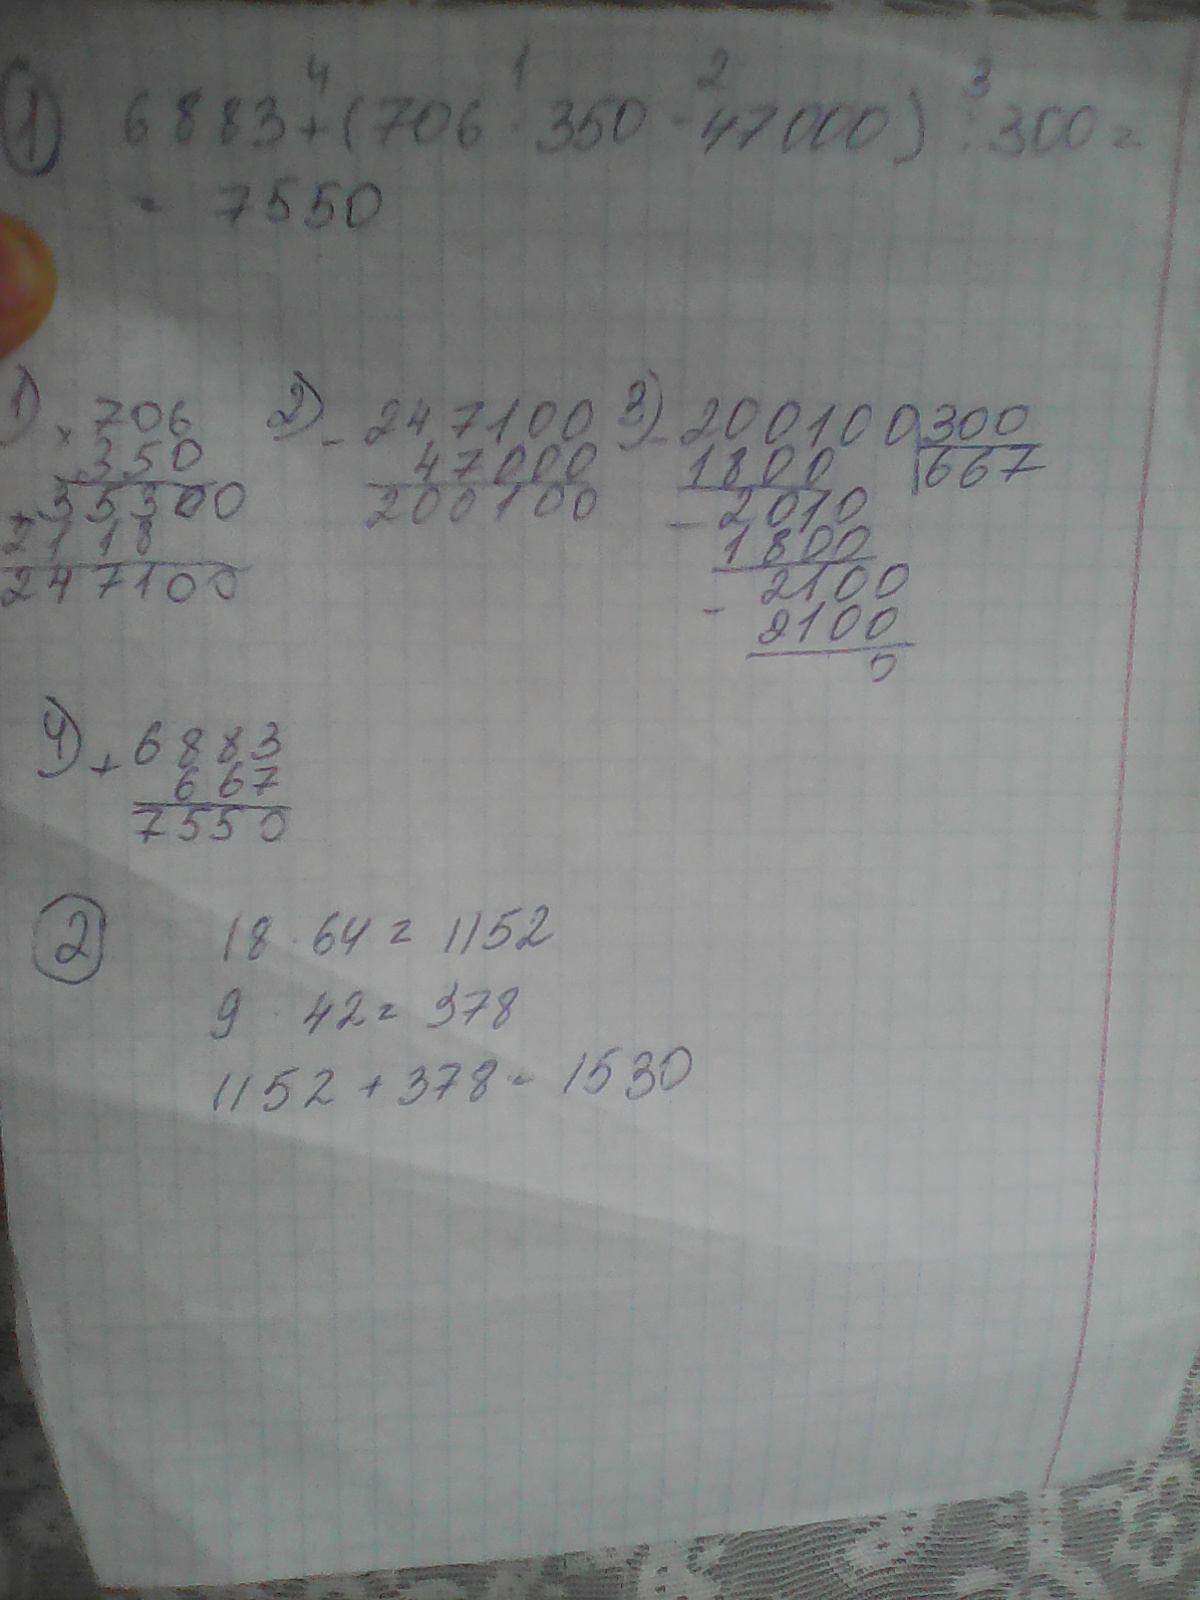 1) 6883 + (706 · 350 - 47000) : 300 =
4 1 2 3
= 7550
1) × 706
350
+ 35300
2118
247100
2) - 247100
47000
200100
3) - 200100 | 300
1800 | 667
- 2010
1800
- 2100
2100
0
4) + 6883
667
7550
2 18 · 64 = 1152
9 · 42 = 378
1152 + 378 = 1530